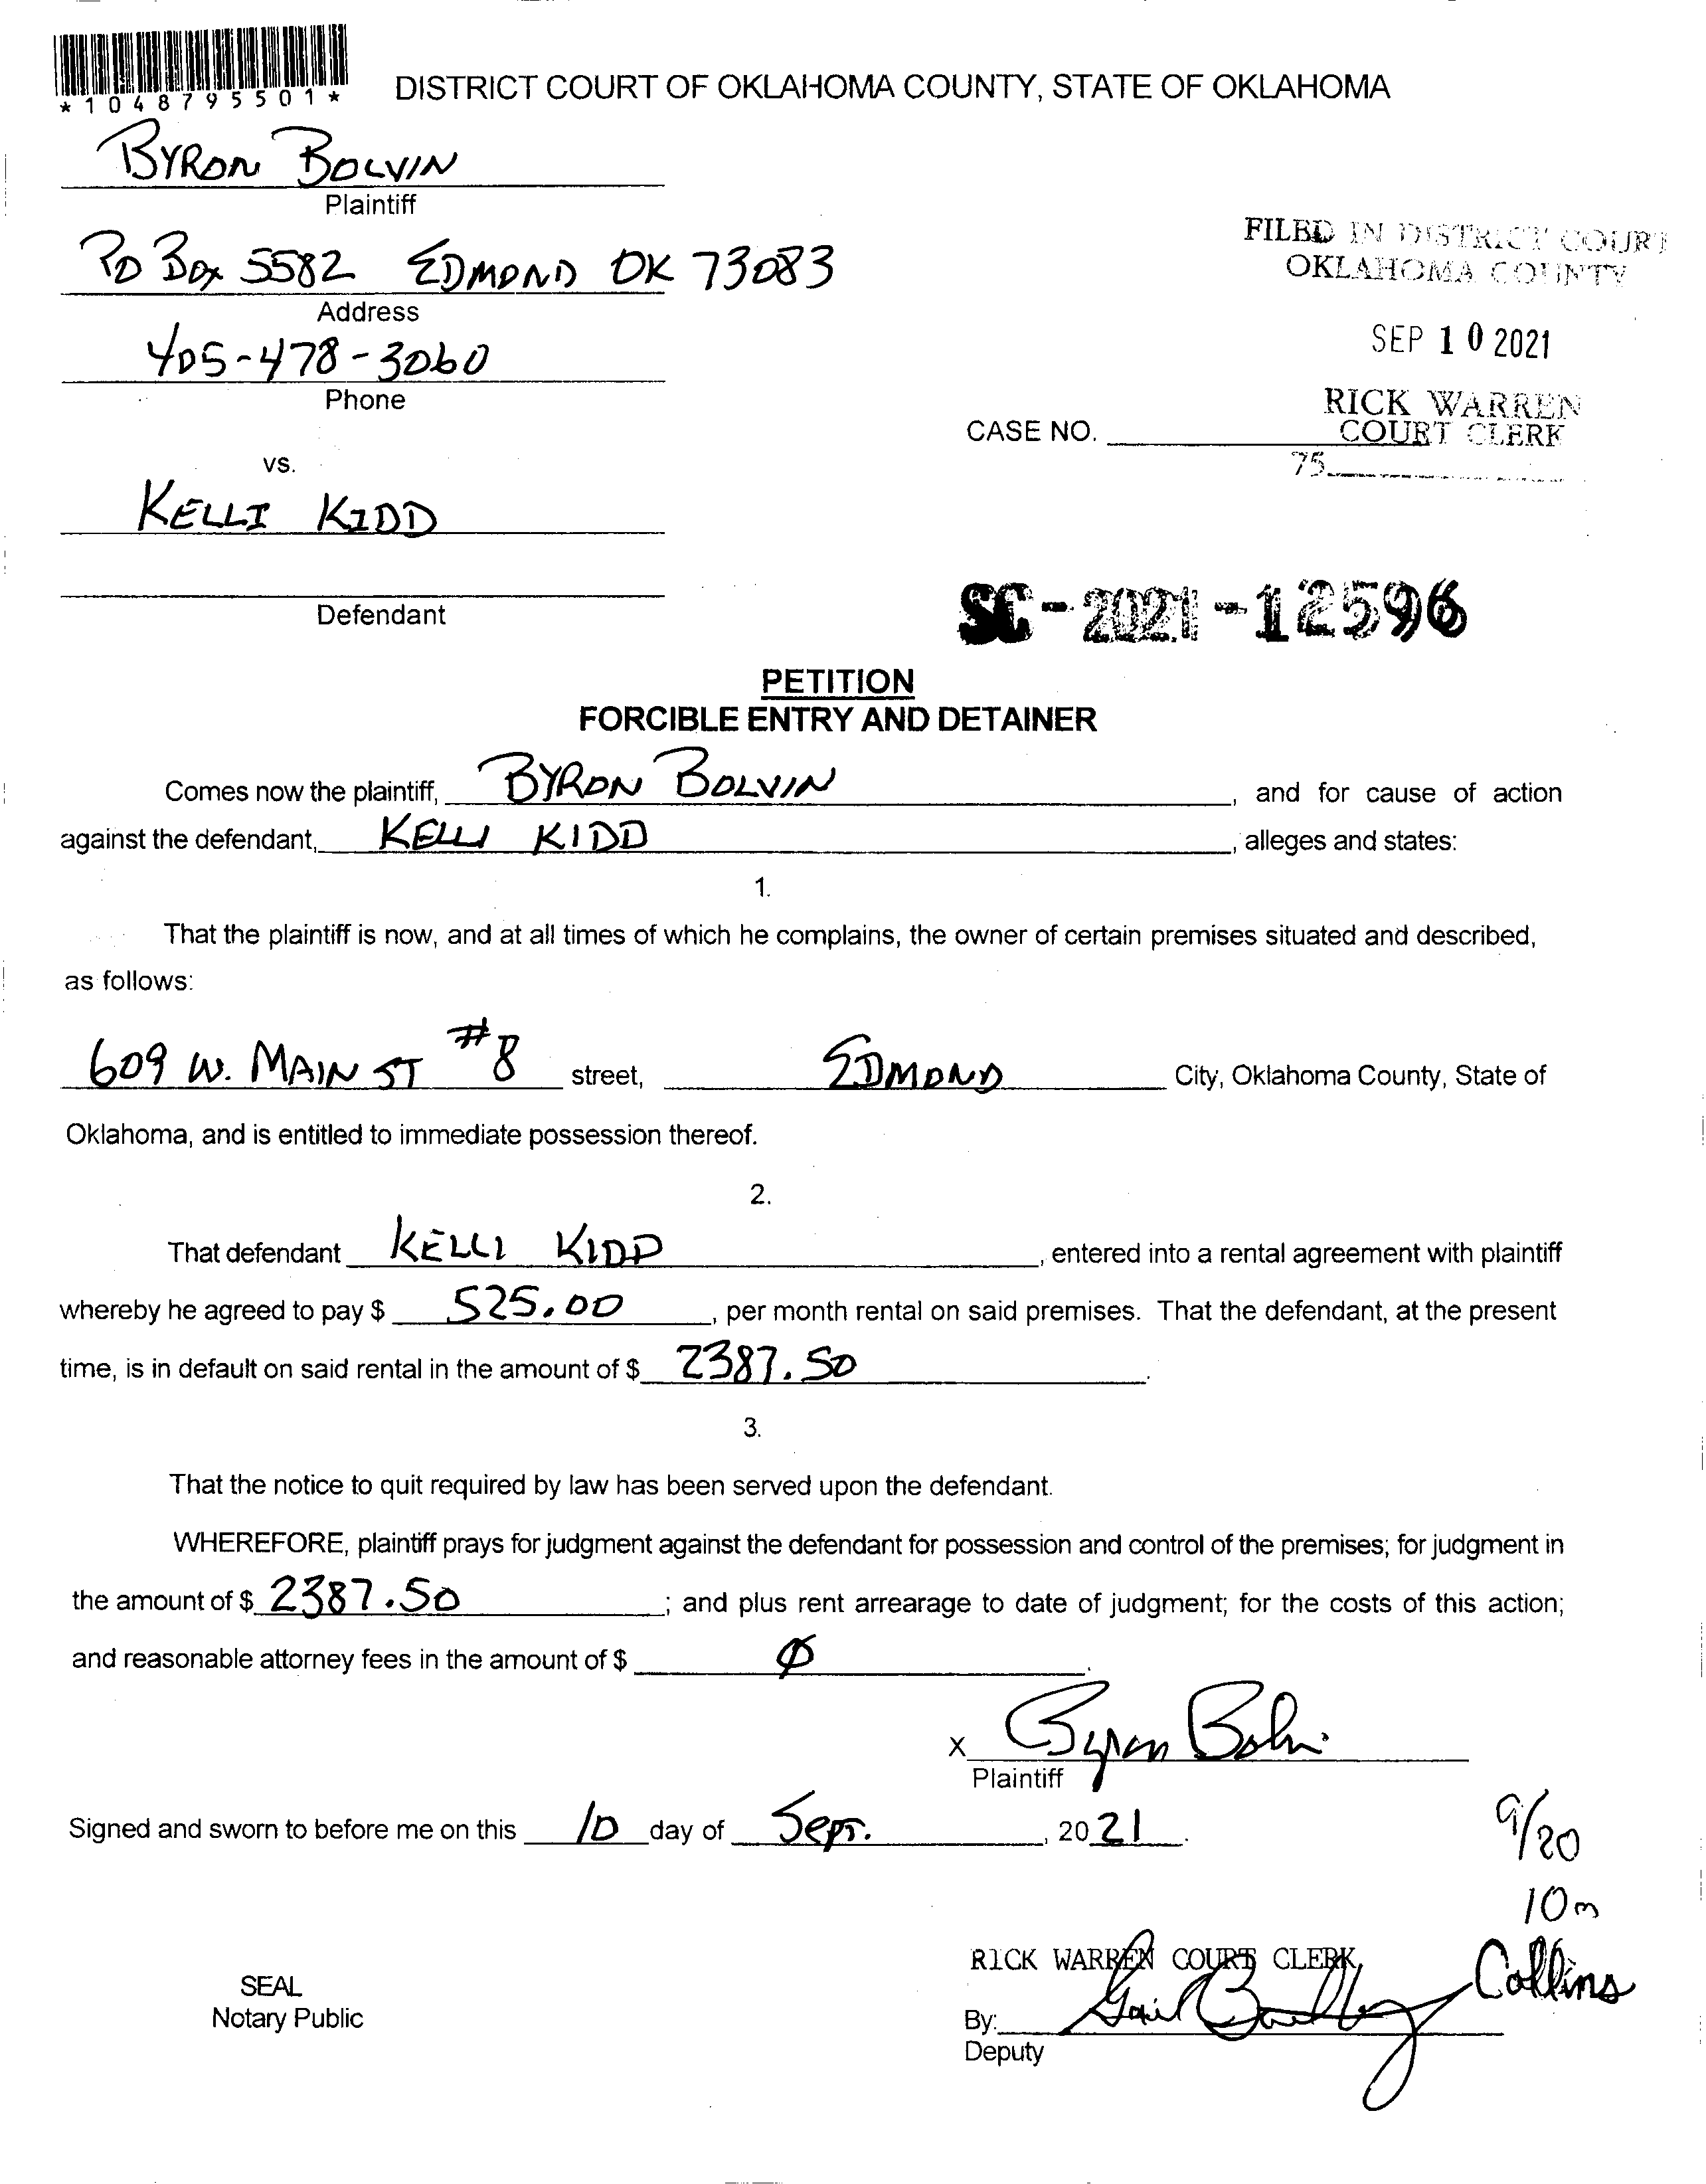 *1048795501*
DISTRICT COURT OF OKLAHOMA COUNTY, STATE OF OKLAHOMA
BYRON BOLVIN
Plaintiff
PO BOX 5582 EDMOND OK 73083
Address
405-478-3060
Phone
vs.
KELLI KIDD
Defendant
FILED IN DISTRICT COURT
OKLAHOMA COUNTY
SEP 10 2021
RICK WARREN
COURT CLERK
CASE NO.
75
SC-2021-12596
PETITION
FORCIBLE ENTRY AND DETAINER
Comes now the plaintiff, BYRON BOLVIN, and for cause of action
against the defendant, KELLI KIDD, alleges and states:
1.
That the plaintiff is now, and at all times of which he complains, the owner of certain premises situated and described,
as follows:
609 W. MAIN ST #8 street, EDMOND City, Oklahoma County, State of
Oklahoma, and is entitled to immediate possession thereof.
2.
That defendant KELLI KIDD, entered into a rental agreement with plaintiff
whereby he agreed to pay $ 525.00, per month rental on said premises. That the defendant, at the present
time, is in default on said rental in the amount of $ 2387.50.
3.
That the notice to quit required by law has been served upon the defendant.
WHEREFORE, plaintiff prays for judgment against the defendant for possession and control of the premises; for judgment in
the amount of $ 2387.50; and plus rent arrearage to date of judgment; for the costs of this action;
and reasonable attorney fees in the amount of $ Ø.
X Byron Bolvin
Plaintiff
Signed and sworn to before me on this 10 day of Sept., 2021.
9/20
10m
Collins
RICK WARREN COURT CLERK
SEAL
Notary Public
By: Gail
Deputy